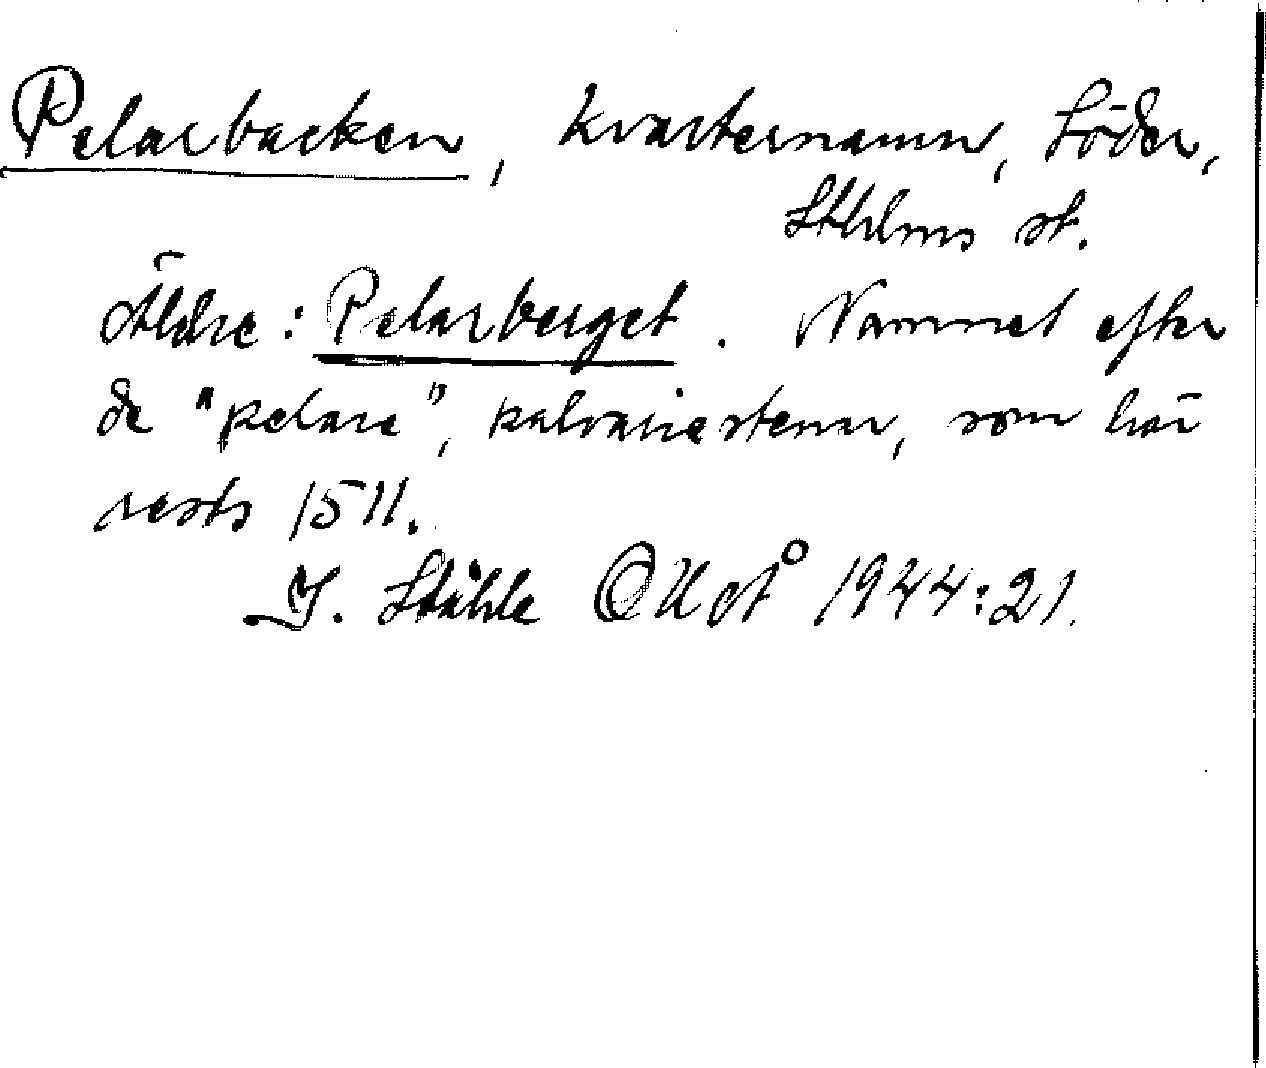 Pelarbacken, kvartersnamn, Söder,
Sthlms st.
Äldre: Pelarberget. Namnet efter
de "pelare", kalvariestenar, som här
rests 1511.
Ståhle OUoÅ 1944:21.